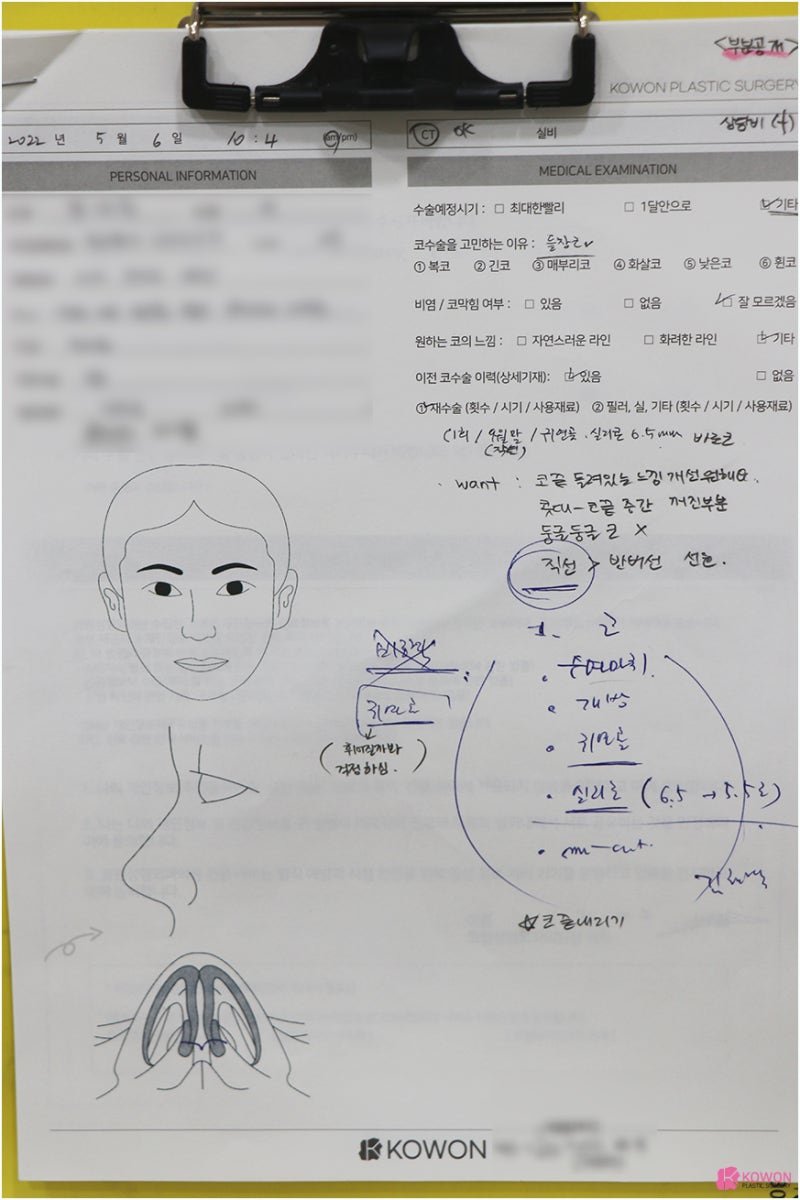 <부분공개>
KOWON PLASTIC SURGERY
2022 년 5 월 6 일 10 : 4 (am/pm)
CT OK 실비 상담비 (+)
PERSONAL INFORMATION
MEDICAL EXAMINATION
수술예정시기 : □ 최대한빨리 □ 1달안으로 □ 기타
코수술을 고민하는 이유 : 들창코
① 복코 ② 긴코 ③ 매부리코 ④ 화살코 ⑤ 낮은코 ⑥ 휜코
비염 / 코막힘 여부 : □ 있음 □ 없음 □ 잘 모르겠음
원하는 코의 느낌 : □ 자연스러운 라인 □ 화려한 라인 □ 기타
이전 코수술 이력(상세기재): □ 있음 □ 없음
① 재수술 (횟수 / 시기 / 사용재료) ② 필러, 실, 기타 (횟수 / 시기 / 사용재료)
(1회 / 9월말 / 귀연골, 실리콘 6.5mm 바른코
(작년)
· want : 코끝 들려있는 느낌 개선 원해요.
콧대-코끝 중간 꺼진부분
둥글둥글 코 X
직선 > 반버선 선호.
1. 코
귀연골
(휘어질까봐
걱정하심.)
· 개방
· 귀연골
· 실리콘 (6.5 → 5.5로)
· m-cut.
☆코끝내리기
KOWON
KOWON
PLASTIC SURGERY